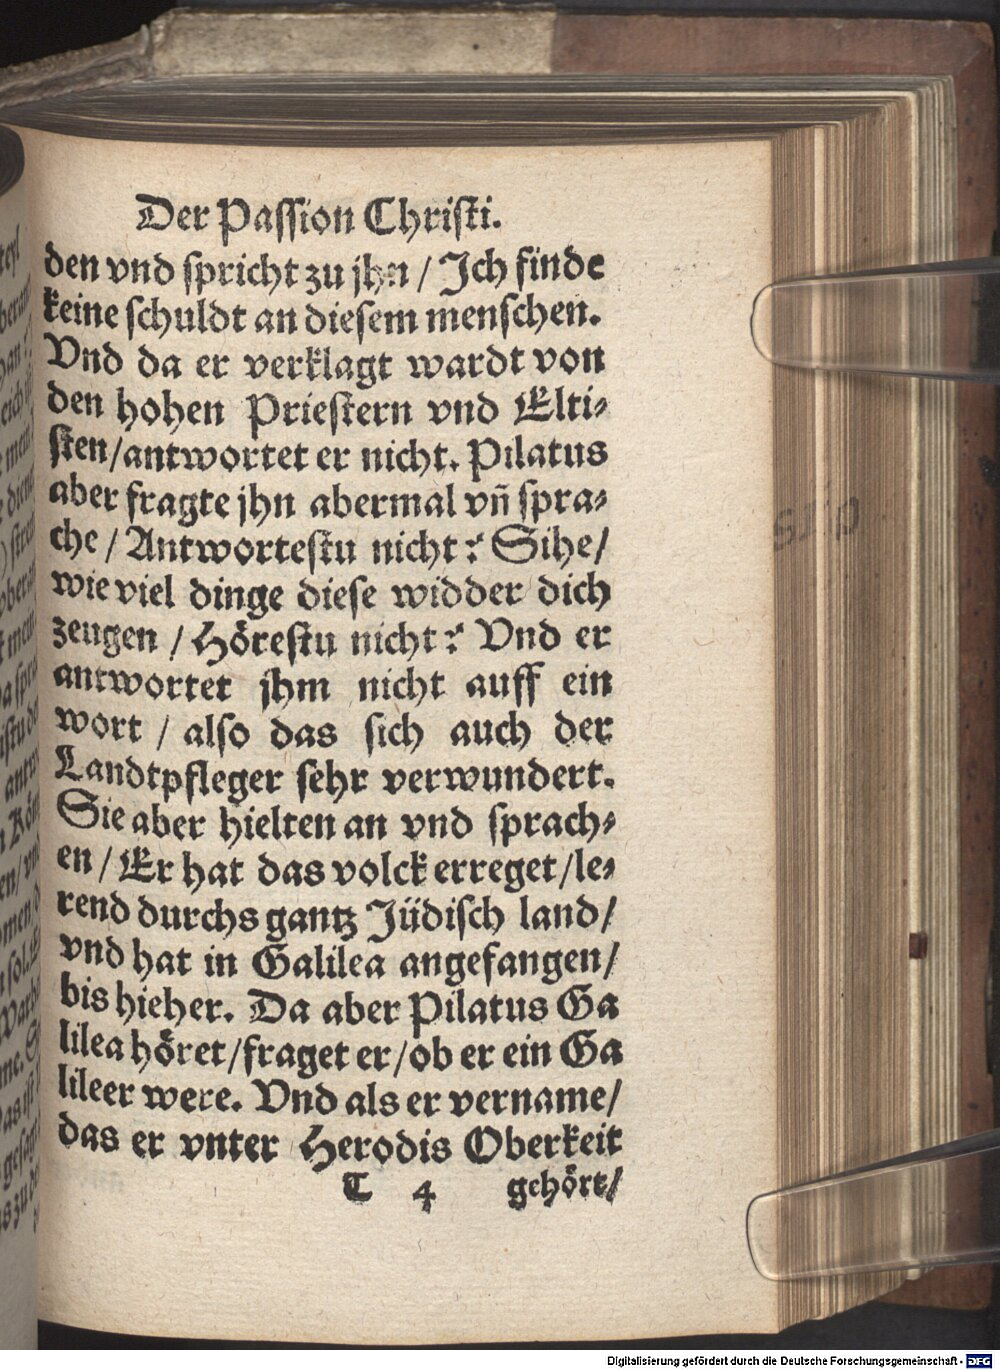 Der Passion Christi.
den vnd spricht zu jhn / Ich finde
keine schuldt an diesem menschen.
Vnd da er verklagt wardt von
den hohen Priestern vnd Elti⸗
sten/antwortet er nicht. Pilatus
aber fragte jhn abermal vñ spra⸗
che / Antwortestu nicht? Sihe/
wie viel dinge diese widder dich
zeugen / Hörestu nicht? Vnd er
antwortet jhm nicht auff ein
wort / also das sich auch der
Landtpfleger sehr verwundert.
Sie aber hielten an vnd sprach⸗
en / Er hat das volck erreget/le⸗
rend durchs gantz Jüdisch land/
vnd hat in Galilea angefangen/
bis hieher. Da aber Pilatus Ga
lilea höret/fraget er/ob er ein Ga
lileer were. Vnd als er vername/
das er vnter Herodis Oberkeit
T 4 gehört/
Digitalisierung gefördert durch die Deutsche Forschungsgemeinschaft - DFG